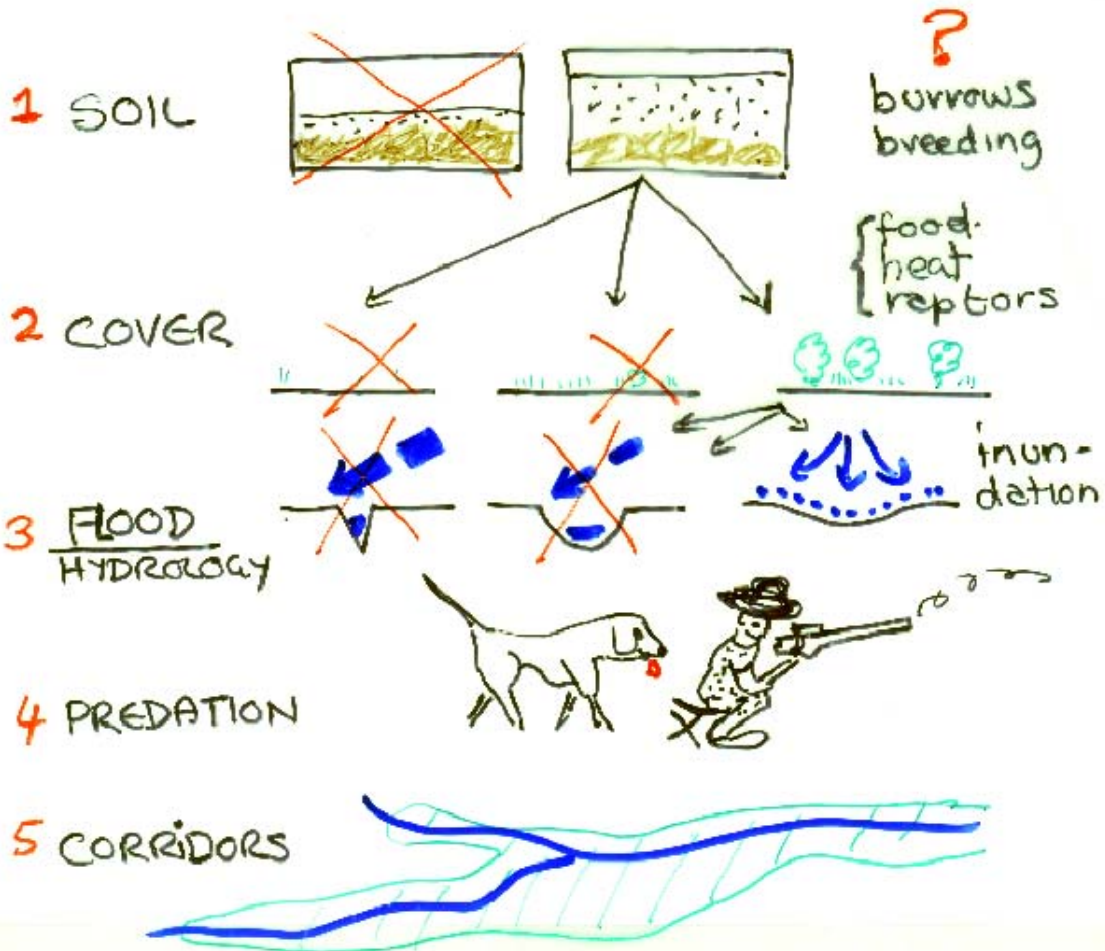 ?
1 SOIL
burrows
breeding
food
heat
raptors
2 COVER
inun-
dation
3 FLOOD
HYDROLOGY
4 PREDATION
5 CORRIDORS